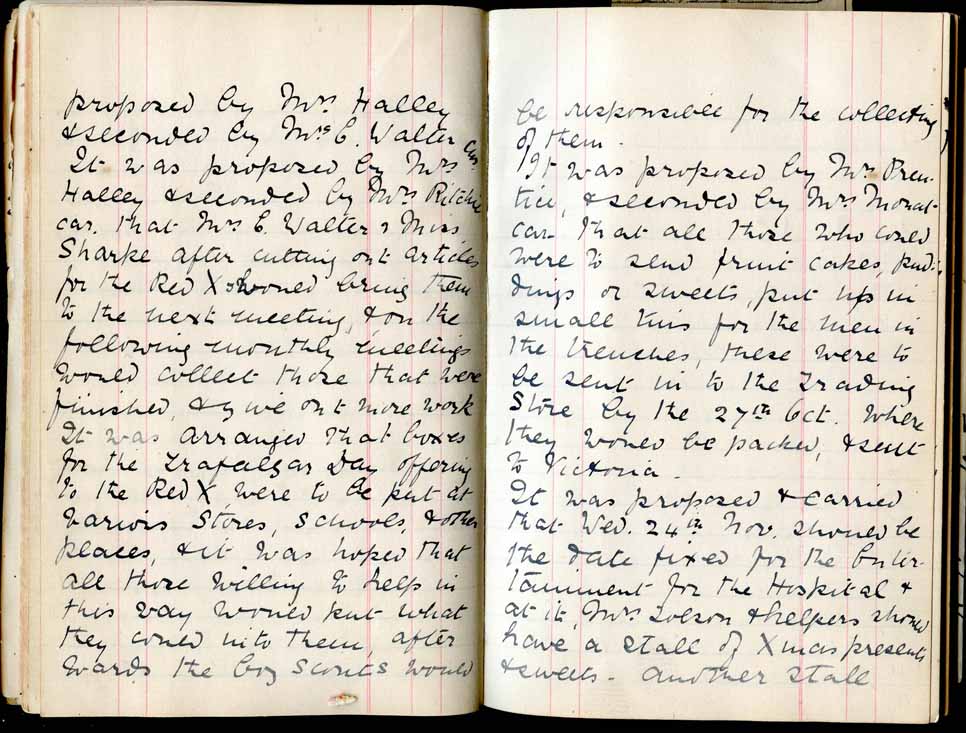 proposed by Mrs Halley
& seconded by Mrs E. Walter car.
It was proposed by Mrs
Halley & seconded by Mrs Ritchie
car. that Mrs E. Walter & Miss
Sharpe after cutting out articles
for the Red X should bring them
to the next meeting, & on the
following monthly meetings
would collect those that were
finished, & give out more work
It was arranged that boxes
for the Trafalgar Day offering
to the Red X were to be put at
various Stores, Schools, & other
places, & it was hoped that
all those willing to help in
this way would put what
they could into them, after
wards the Boy Scouts would
be responsible for the collecting
of them.
It was proposed by Mrs Pren-
tice, & seconded by Mrs Mouat-
car. that all those who could
were to send fruit cakes, pud-
dings or sweets, put up in
small tins for the men in
the trenches, these were to
be sent in to the Trading
Store by the 27th Oct. where
they would be packed, & sent
to Victoria.
It was proposed & carried
that Wed. 24th Nov. should be
the date fixed for the Enter-
tainment for the Hospital &
at it, Mrs Tolson & helpers should
have a stall of Xmas presents
& sweets - another stall